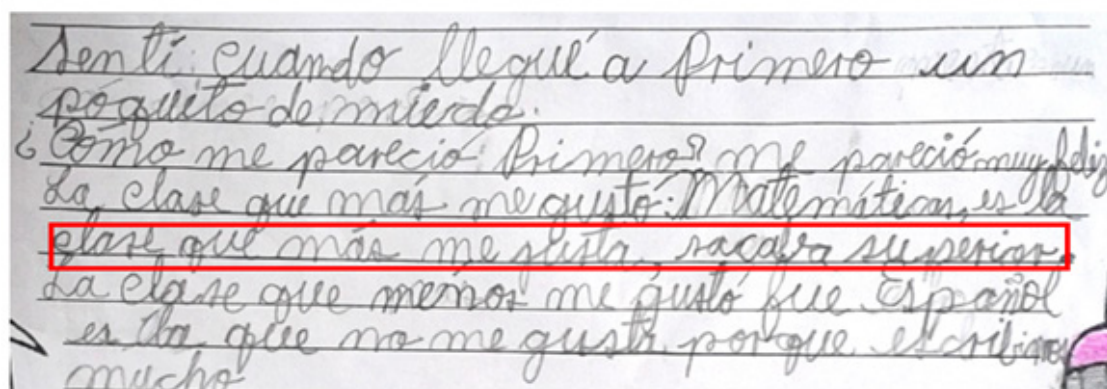 Sentí cuando llegué a Primero un
póquito de mierdo.
¿Cómo me pareció Primero? me pareció muy feliz
La clase qué más me gustó: Matemáticas, es la
clase qué más me gusta, sacaba superior.
La clase que menos me gustó fue Español
es la que no me gusta porque escribimos
mucho